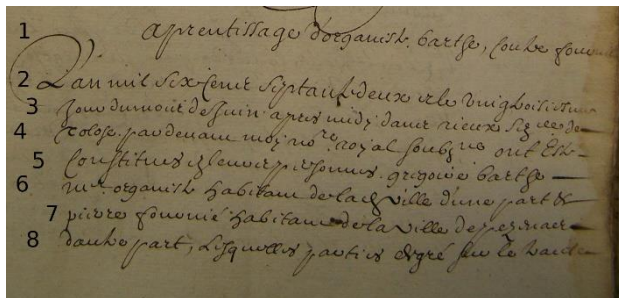 1 aprentissage d'organiste barthe, contre fournié
2 L'an mil six cens septante deux et le vingt huitiesme
3 jour du mois de juin apres midy dans rieux
4 tolose. pardevant moy no.re royal soubz.né ont esté
5 Constitués personnes. gregoire barthe
6 m.e organiste habitant de lad ville d'une part &
7 pierre fournié habitant de la ville de
8 d'autre part, lesquelles parties de gré sur le